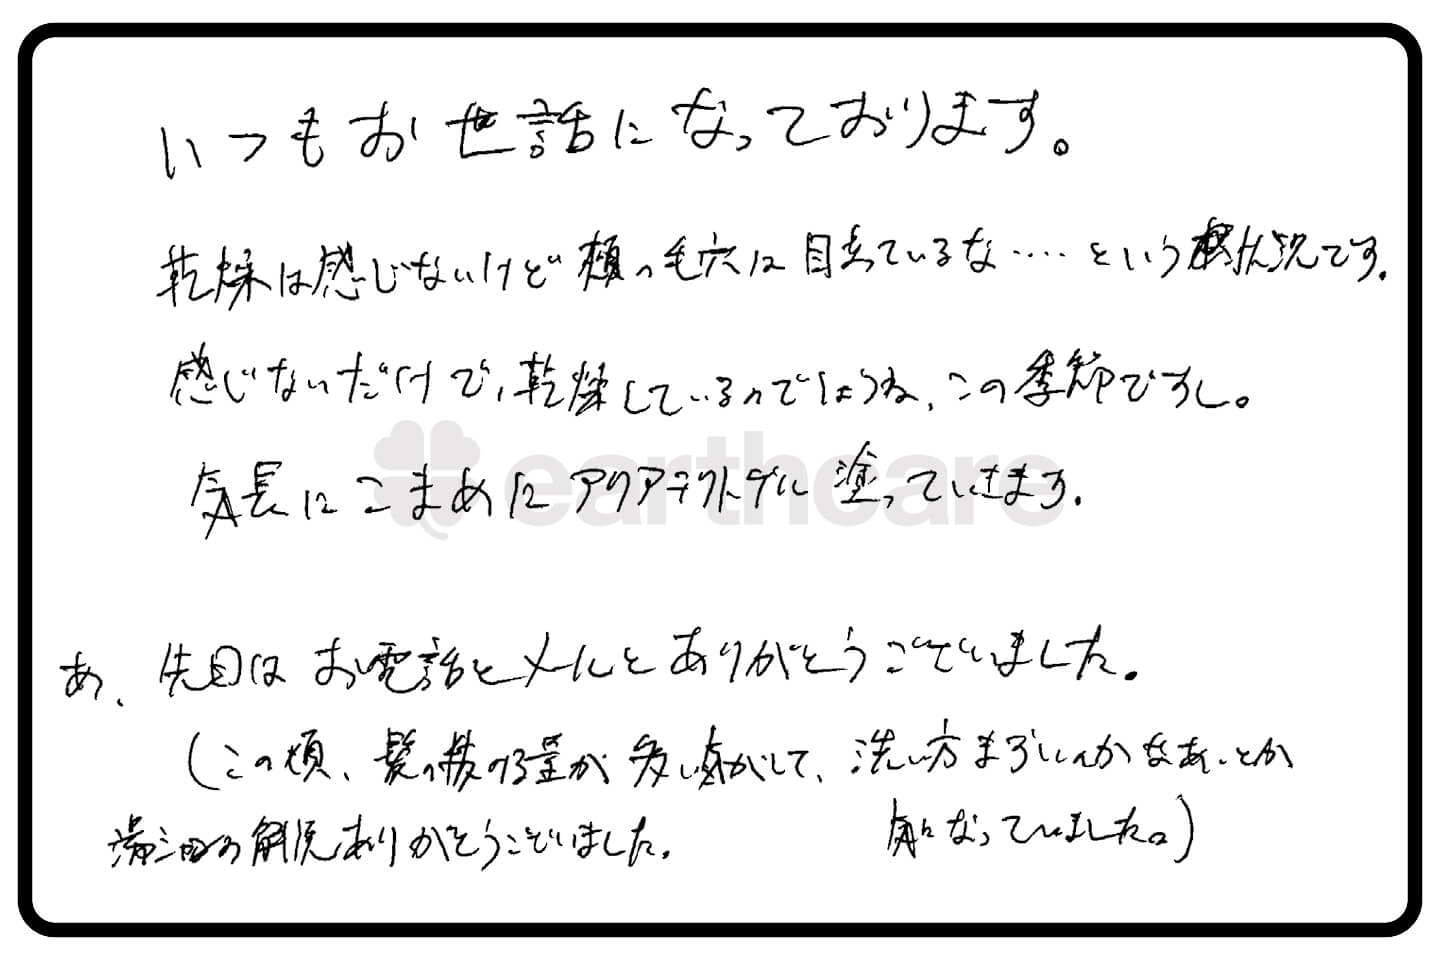 いつもお世話になっております。
乾燥は感じないけど頬の毛穴は目立っているな‥‥という状況です。
感じないだけで、乾燥しているのでしょうね、この季節ですし。
earthcare
気長にこまめにアクアテクトゲル塗っていきます。
あ、先日はお電話とメールとありがとうございました。
(この頃、髪の抜ける量が多い気がして、洗い方まずいんかなあ、とか
気になっていました。)
湯シャンの解説ありがとうございました。